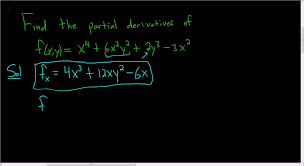 Find the partial derivatives of
f(x,y) = x⁴ + 6x²y² + 2y² - 3x²
Sol f_x = 4x³ + 12xy² - 6x
f